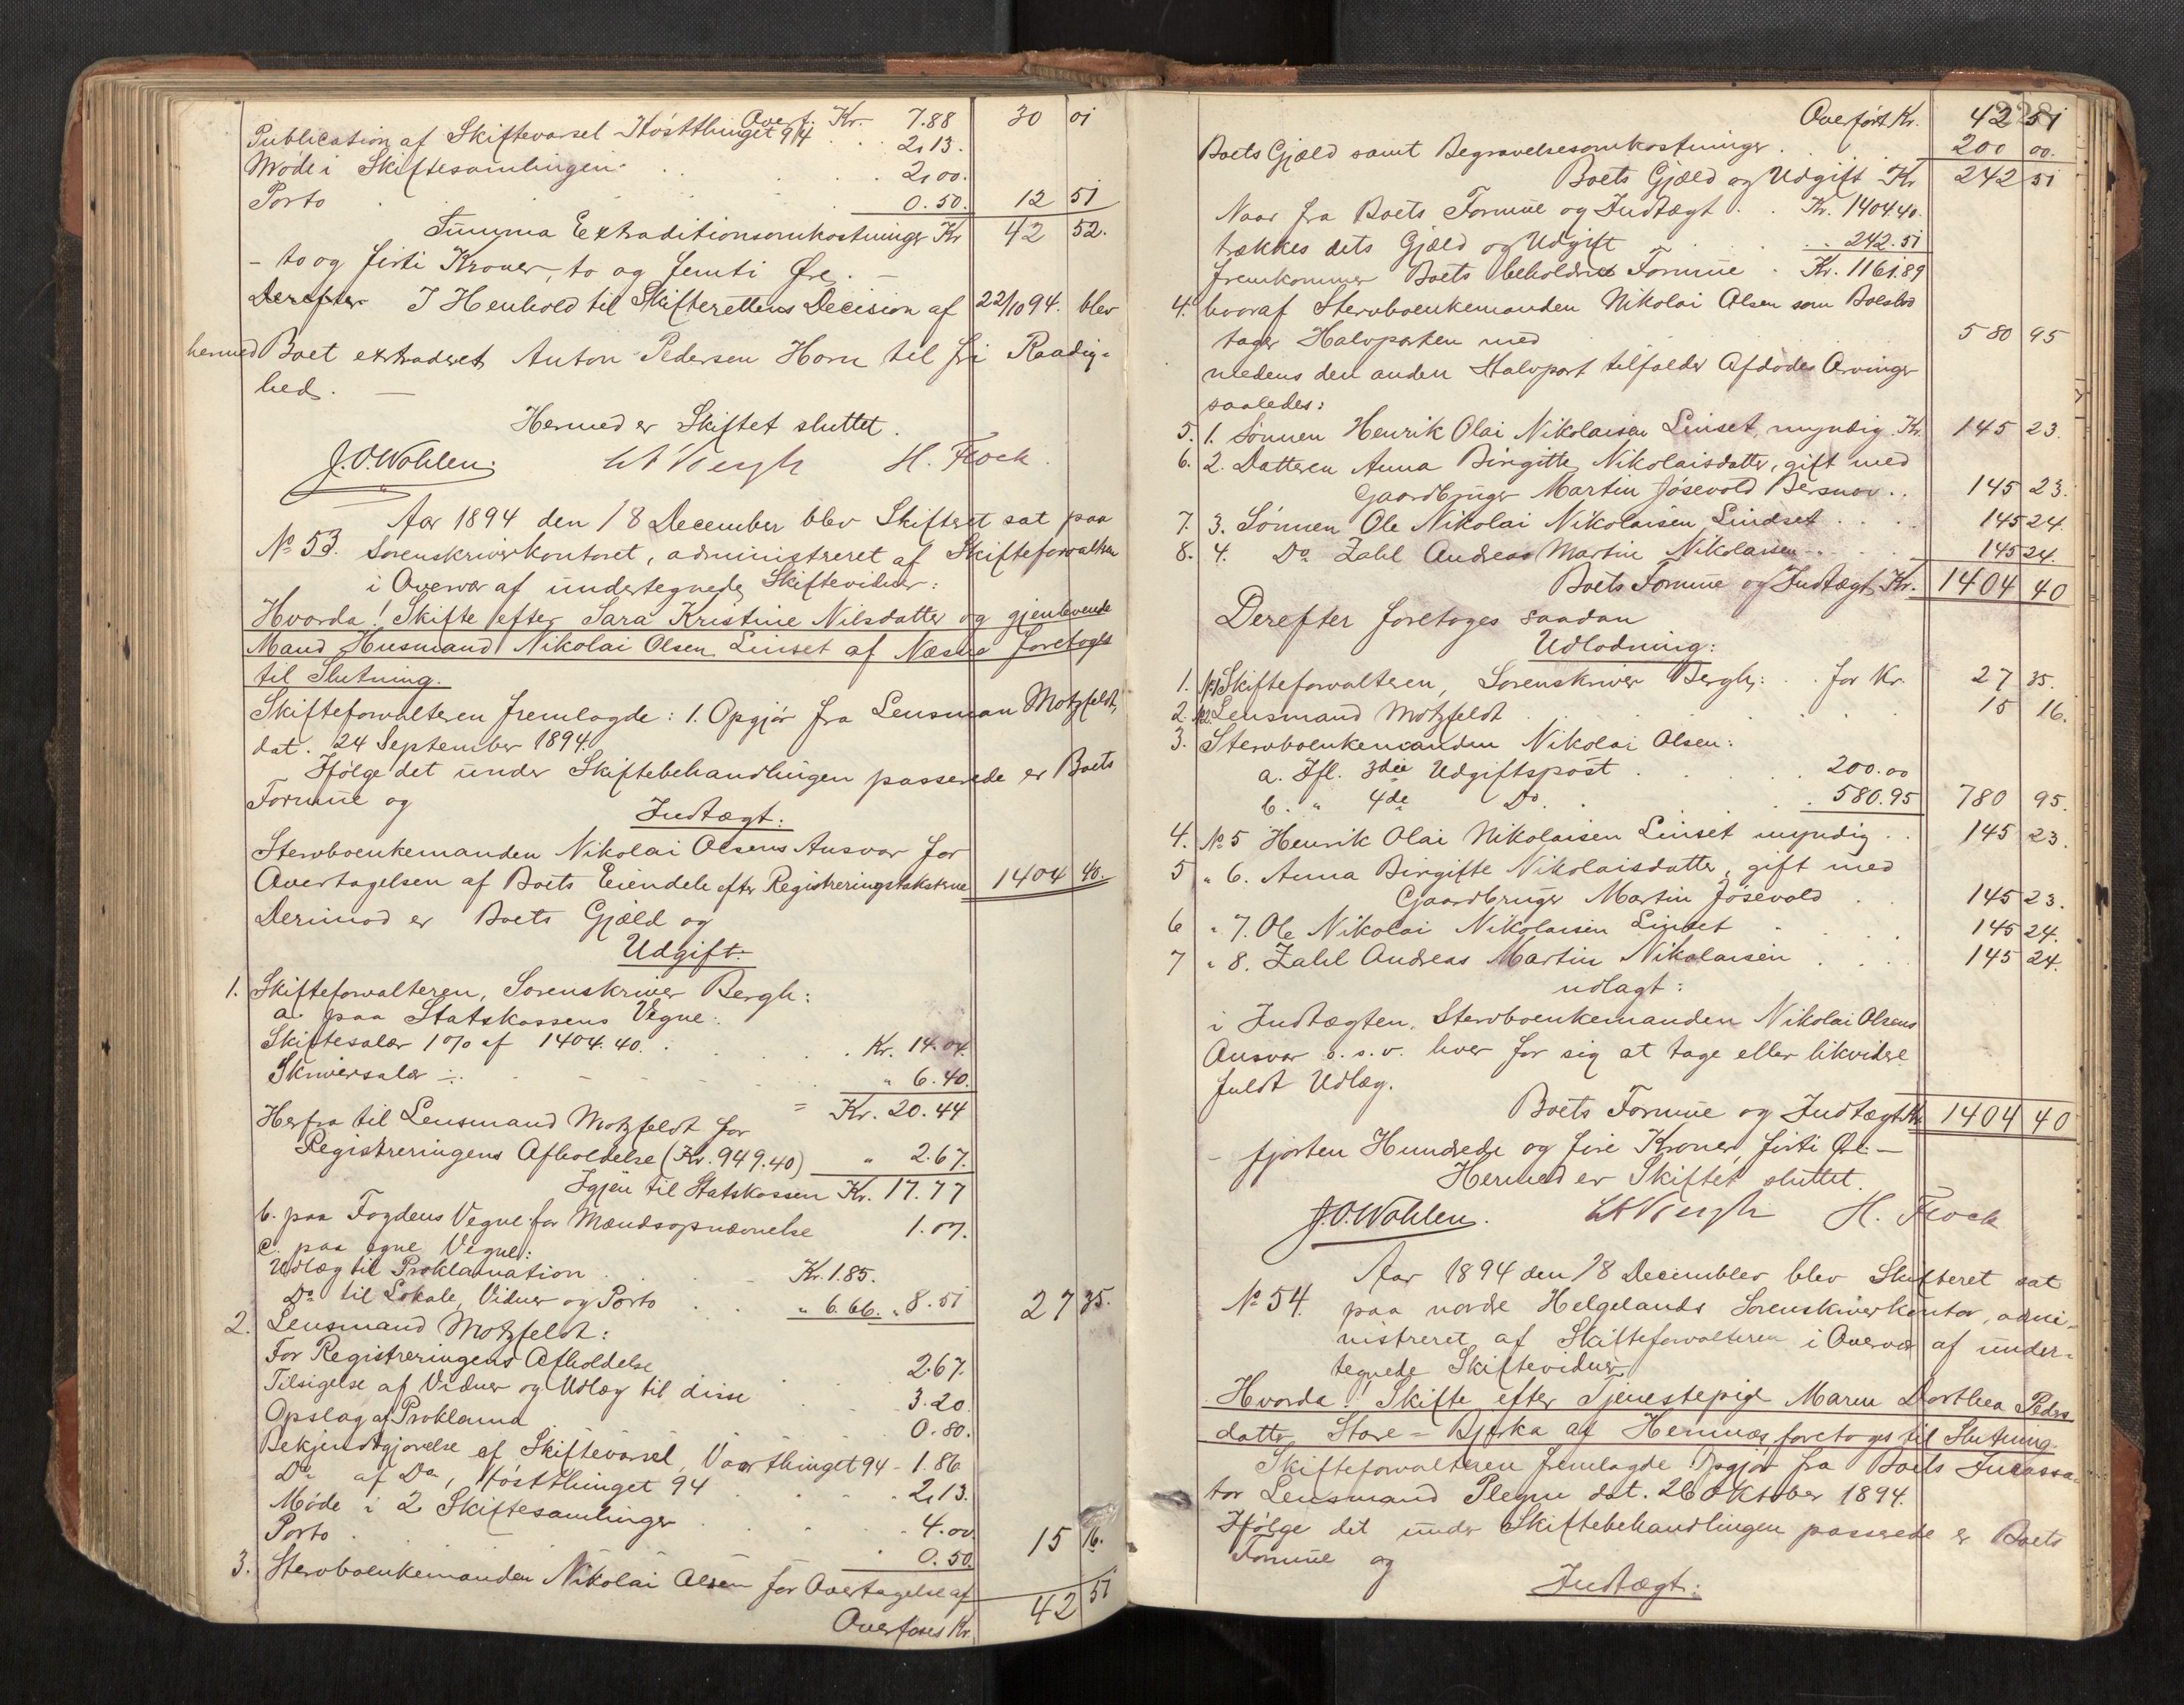 Overf. Kr. 7.88 30 01
Publication af Skiftevarsel Høstthinget 94 . . 2,13.
Møde i Skiftesamlingen . . . 2,00.
Porto . . . 0.50. 12 51
Summa Extraditionsomkostninger Kr 42 52.
- to og firti Kroner, to og femti Øre. -
Derefter I Henhold til Skifterettens Decision af 22/10 94. blev
hermed Boet extraderet Anton Pedersen Horn til fri Raadig-
hed. -
Hermed er Skiftet sluttet.
J.O.Wohlen. H. Flock.
Aar 1894 den 18 December blev Skifteret sat paa
No 53. Sorenskriverkontoret, administreret af Skifteforvalteren
i Overvær af undertegnede Skiftevidner:
Hvorda! Skifte efter Sara Kristine Nilsdatter og gjenlevende
Mand Husmand Nikolai Olsen Linset af Næsna foretoges
til Slutning.
Skifteforvalteren fremlagde: 1. Opgjør fra Lensman Motzfeldt,
dat. 24 September 1894.
Ifølge det under Skiftebehandlingen passerede er Boets
Formue og
Indtægt:
Stervboenkemanden Nikolai Olsens Ansvar for
Overtagelsen af Boets Eiendele efter Registreringstaksterne 1404 40.
Derimod er Boets Gjæld og
Udgift:
1. Skifteforvalteren, Sorenskriver Bergh:
a. paa Statskassens Vegne:
Skiftesalær 1% af 1404.40. . . . Kr. 14.04.
Skriversalær -:- . . . " 6.40.
= Kr. 20.44
Herfra til Lensmand Motzfeldt for
Registreringens Afholdelse (Kr. 949.40) " 2.67.
Igjen til Statskassen Kr. 17.77
b. paa Fogdens Vegne for Mændsopnævnelse 1.07.
c. paa egne Vegne:
Udlæg til Proklamation . . . Kr. 1.85.
Do til Lokale, Vidner og Porto . . " 6.66. " 8.51 27 35.
2. Lensmand Motzfeldt:
For Registreringens Afholdelse 2.67.
Tilsigelse af Vidner og Udlæg til disse . . 3.20.
Opslag af Proklama . . . 0.80.
Bekjendtgjørelse af Skiftevarsel, Vaarthinget 94 - 1.86
Do af Do, Høstthinget 94 . . . 2,13.
Møde i 2 Skiftesamlinger . . . 4.00
Porto . . . 0.50. 15 16.
3. Stervboenkemanden Nikolai Olsen for Overtagelse af
Overføres Kr. 42 51
Overført Kr. 42 51
Boets Gjæld samt Begravelsesomkostninger . . 200 00.
Boets Gjæld og Udgift Kr 242 51
Naar fra Boets Formue og Indtægt . . Kr. 1404.40.
trækkes dets Gjæld og Udgift . . . 242.51
fremkommer Boets beholdne Formue . Kr. 1161.89
4. hvoraf Stervboenkemanden Nikolai Olsen som Boeslod
tager Halvparten med 580 95
medens den anden Halvpart tilfalder Afdødes Arvinger
saaledes:
5. 1. Sønnen Henrik Olai Nikolaisen Linset, myndig Kr. 145 23.
6. 2. Datteren Anna Birgitte Nikolaisdatter, gift med
Gaardbruger Martin Jøsevold . . 145 23.
7. 3. Sønnen Ole Nikolai Nikolaisen Lindset . . . 145 24.
8. 4. Do Zahl Andreas Martin Nikolaisen . . . 145 24.
Boets Formue og Indtægt Kr. 1404 40
Derefter foretoges saadan
Udlodning:
1. No 1 Skifteforvalteren, Sorenskriver Bergh: . . for Kr. 27 35.
2. No 2. Lensmand Motzfeldt . . . 15 16.
3. Stervboenkemanden Nikolai Olsen:
a. Ifl. 3die Udgiftspost . . . 200.00
b. " 4de Do. . . . 580.95 780 95.
4. No 5 Henrik Olai Nikolaisen Linset myndig . . 145 23.
5 " 6. Anna Birgitte Nikolaisdatter, gift med
Gaardbruger Martin Jøsevold . . 145 23.
6 " 7. Ole Nikolai Nikolaisen Linset . . . 145 24.
7 " 8. Zahl Andreas Martin Nikolaisen . . . 145 24.
udlagt:
i Indtægten, Stervboenkemanden Nikolai Olsens
Ansvar o. s. v. hver for sig at tage eller likvidere
fuldt Udlæg.
Boets Formue og Indtægt Kr. 1404 40
- fjorten Hundrede og fire Kroner, firti Øre -
Hermed er Skiftet sluttet.
J.O.Wohlen. H. Flock
Aar 1894 den 18 December blev Skifteret sat
No 54. paa nordre Helgelands Sorenskriverkontor, admi-
nistreret af Skifteforvalteren i Overvær af under-
tegnede Skiftevidner
Hvorda! Skifte efter Tjenestepige Maren Dorthea Peders
datter Store-Bjerka af Hemnæs foretoges til Slutning.
Skifteforvalteren fremlagde Opgjør fra Boets Incassa-
tor Lensmand Plegm dat. 26 Oktober 1894.
Ifølge det under Skiftebehandlingen passerede er Boets
Formue og
Indtægt: